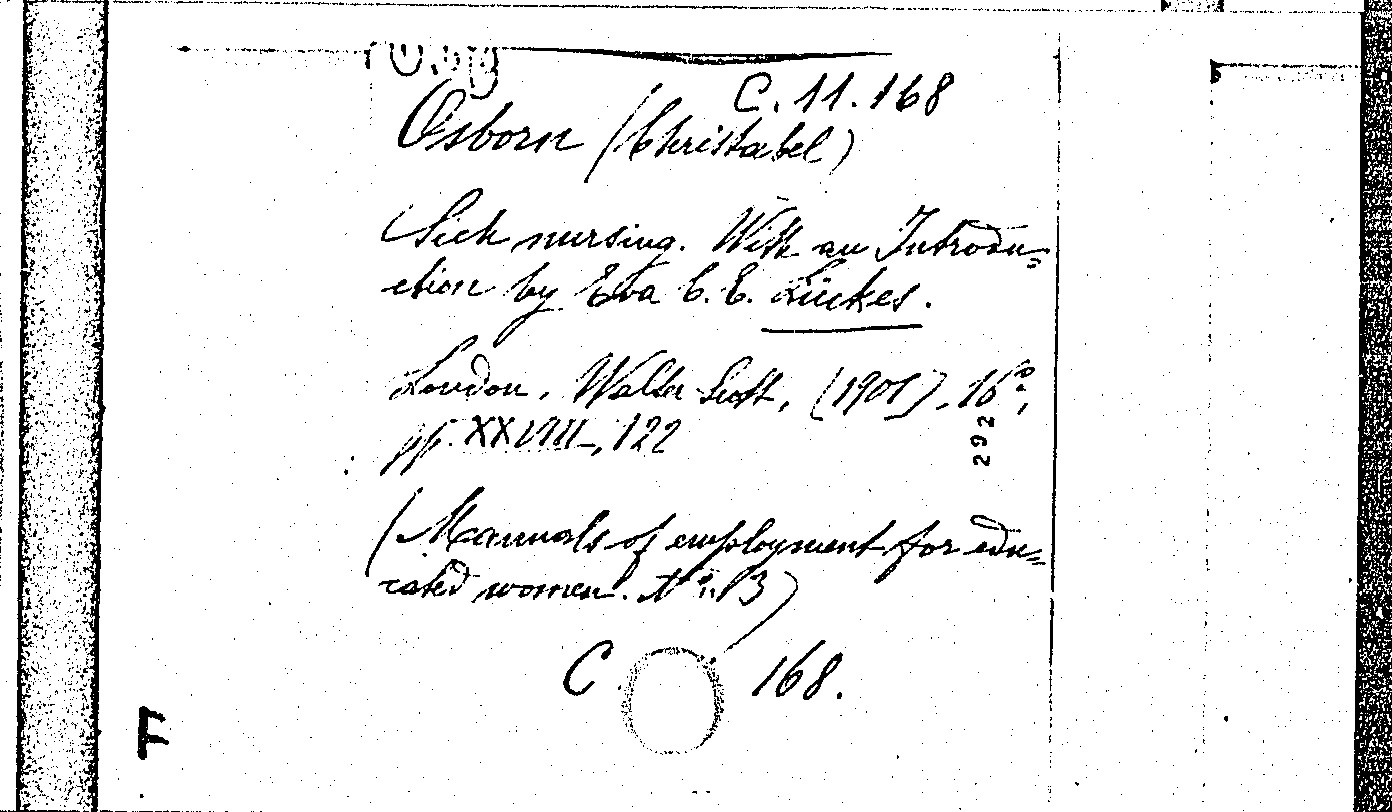 C.11.168
Osborn (Christabel)
Sick nursing. With an Introdu=
ction by Eva C. E. Lückes.
London, Walter Scott, (1901). 16°.,
pp. XXVIII, 122
292
(Manuals of employment for edu=
cated women. N°. 3)
C 168.